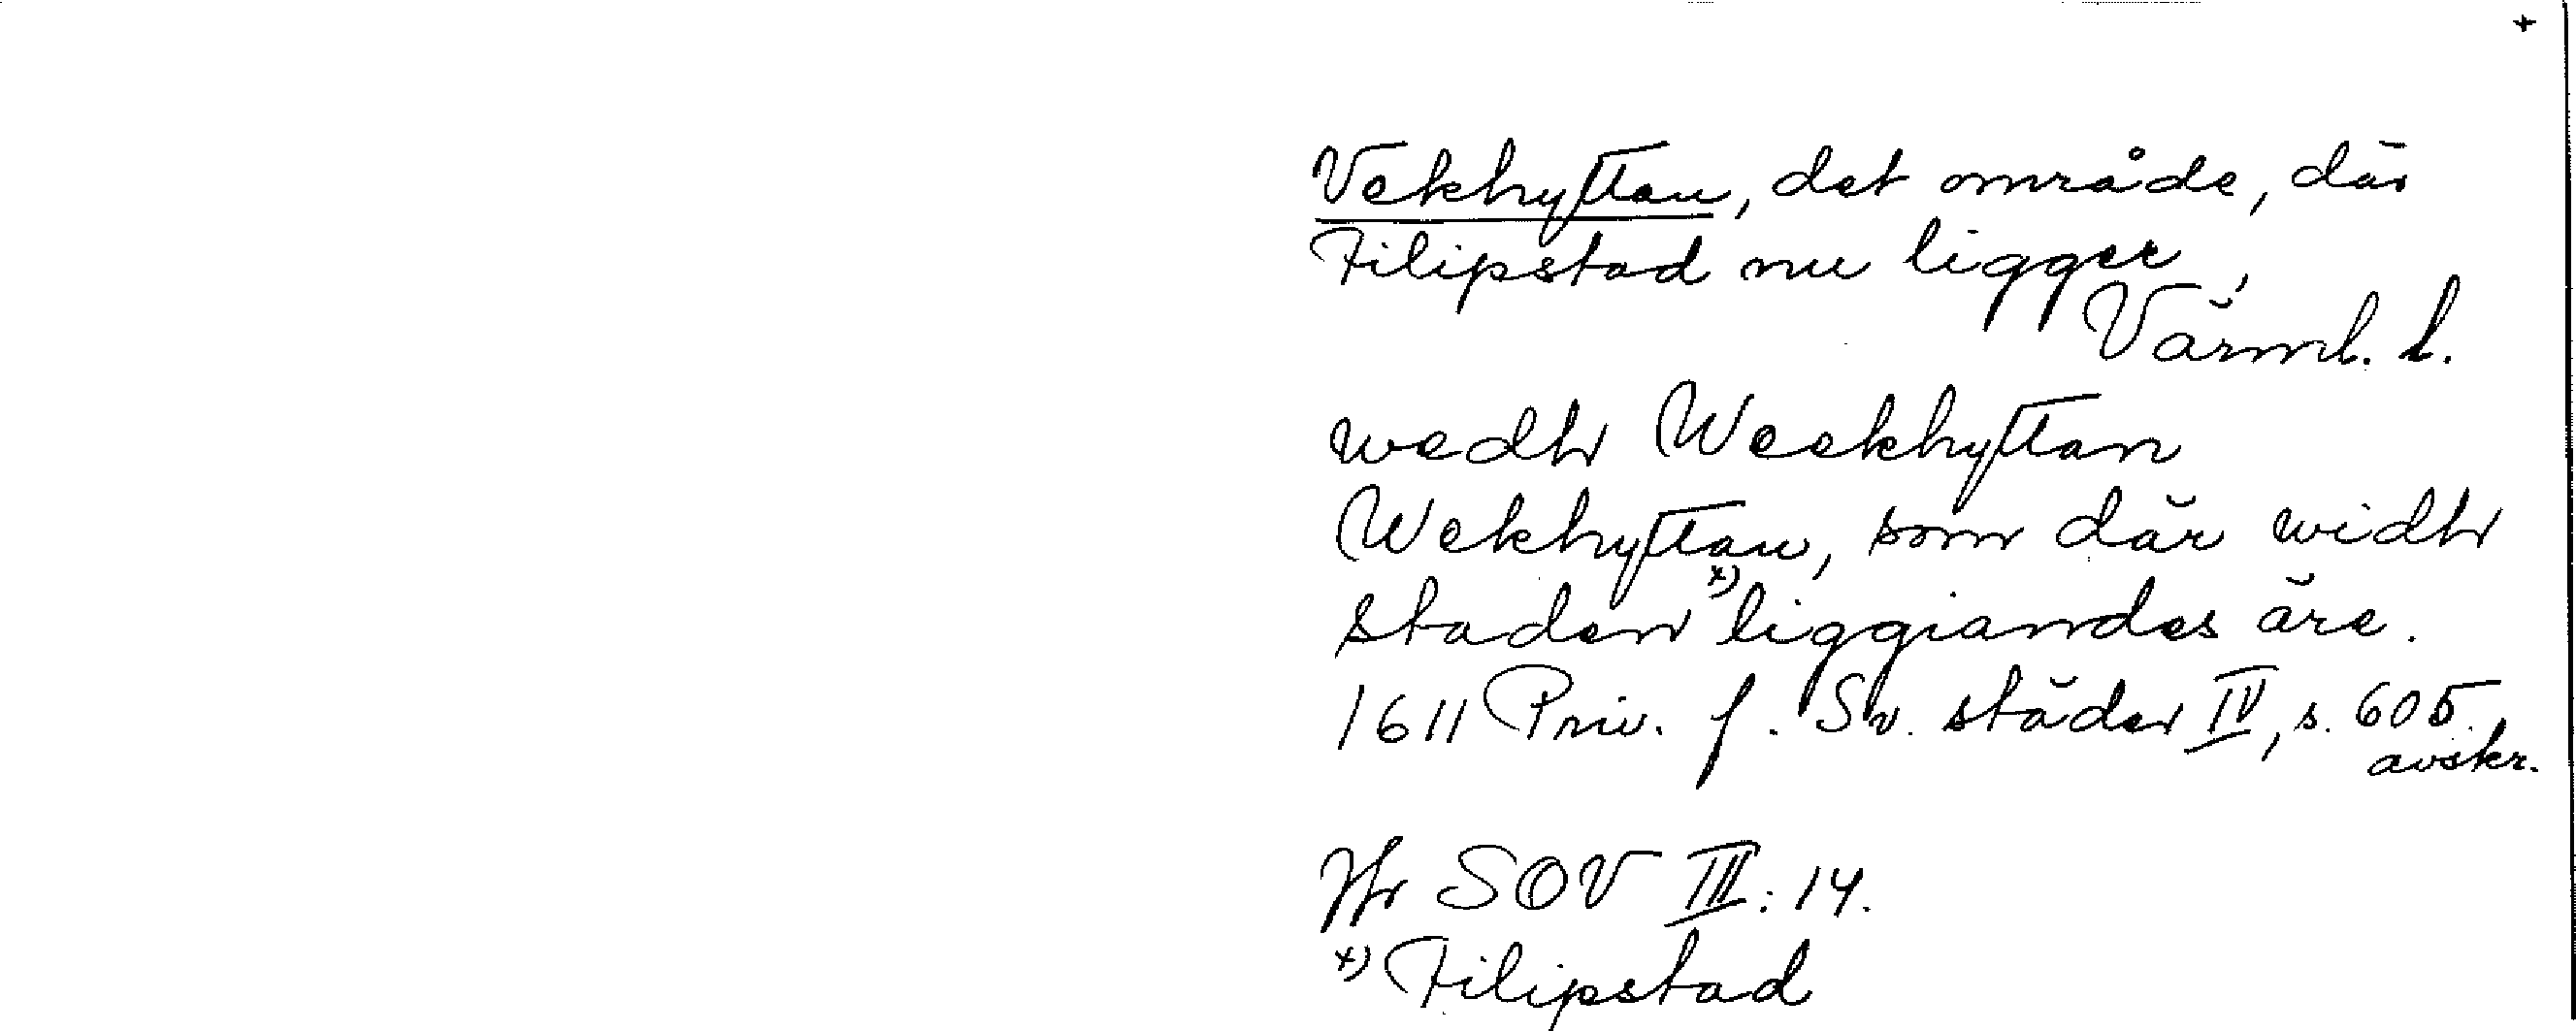 +
Vekhyttan, det område, där
Filipstad nu ligger,
Värml. l.
wedh Weekhyttan
Wekhyttan, som där widh
staden x) liggiandes äre.
1611 Priv. f. Sv. städer IV, s. 605.
avskr.
Jfr SOV III: 14.
x) Filipstad